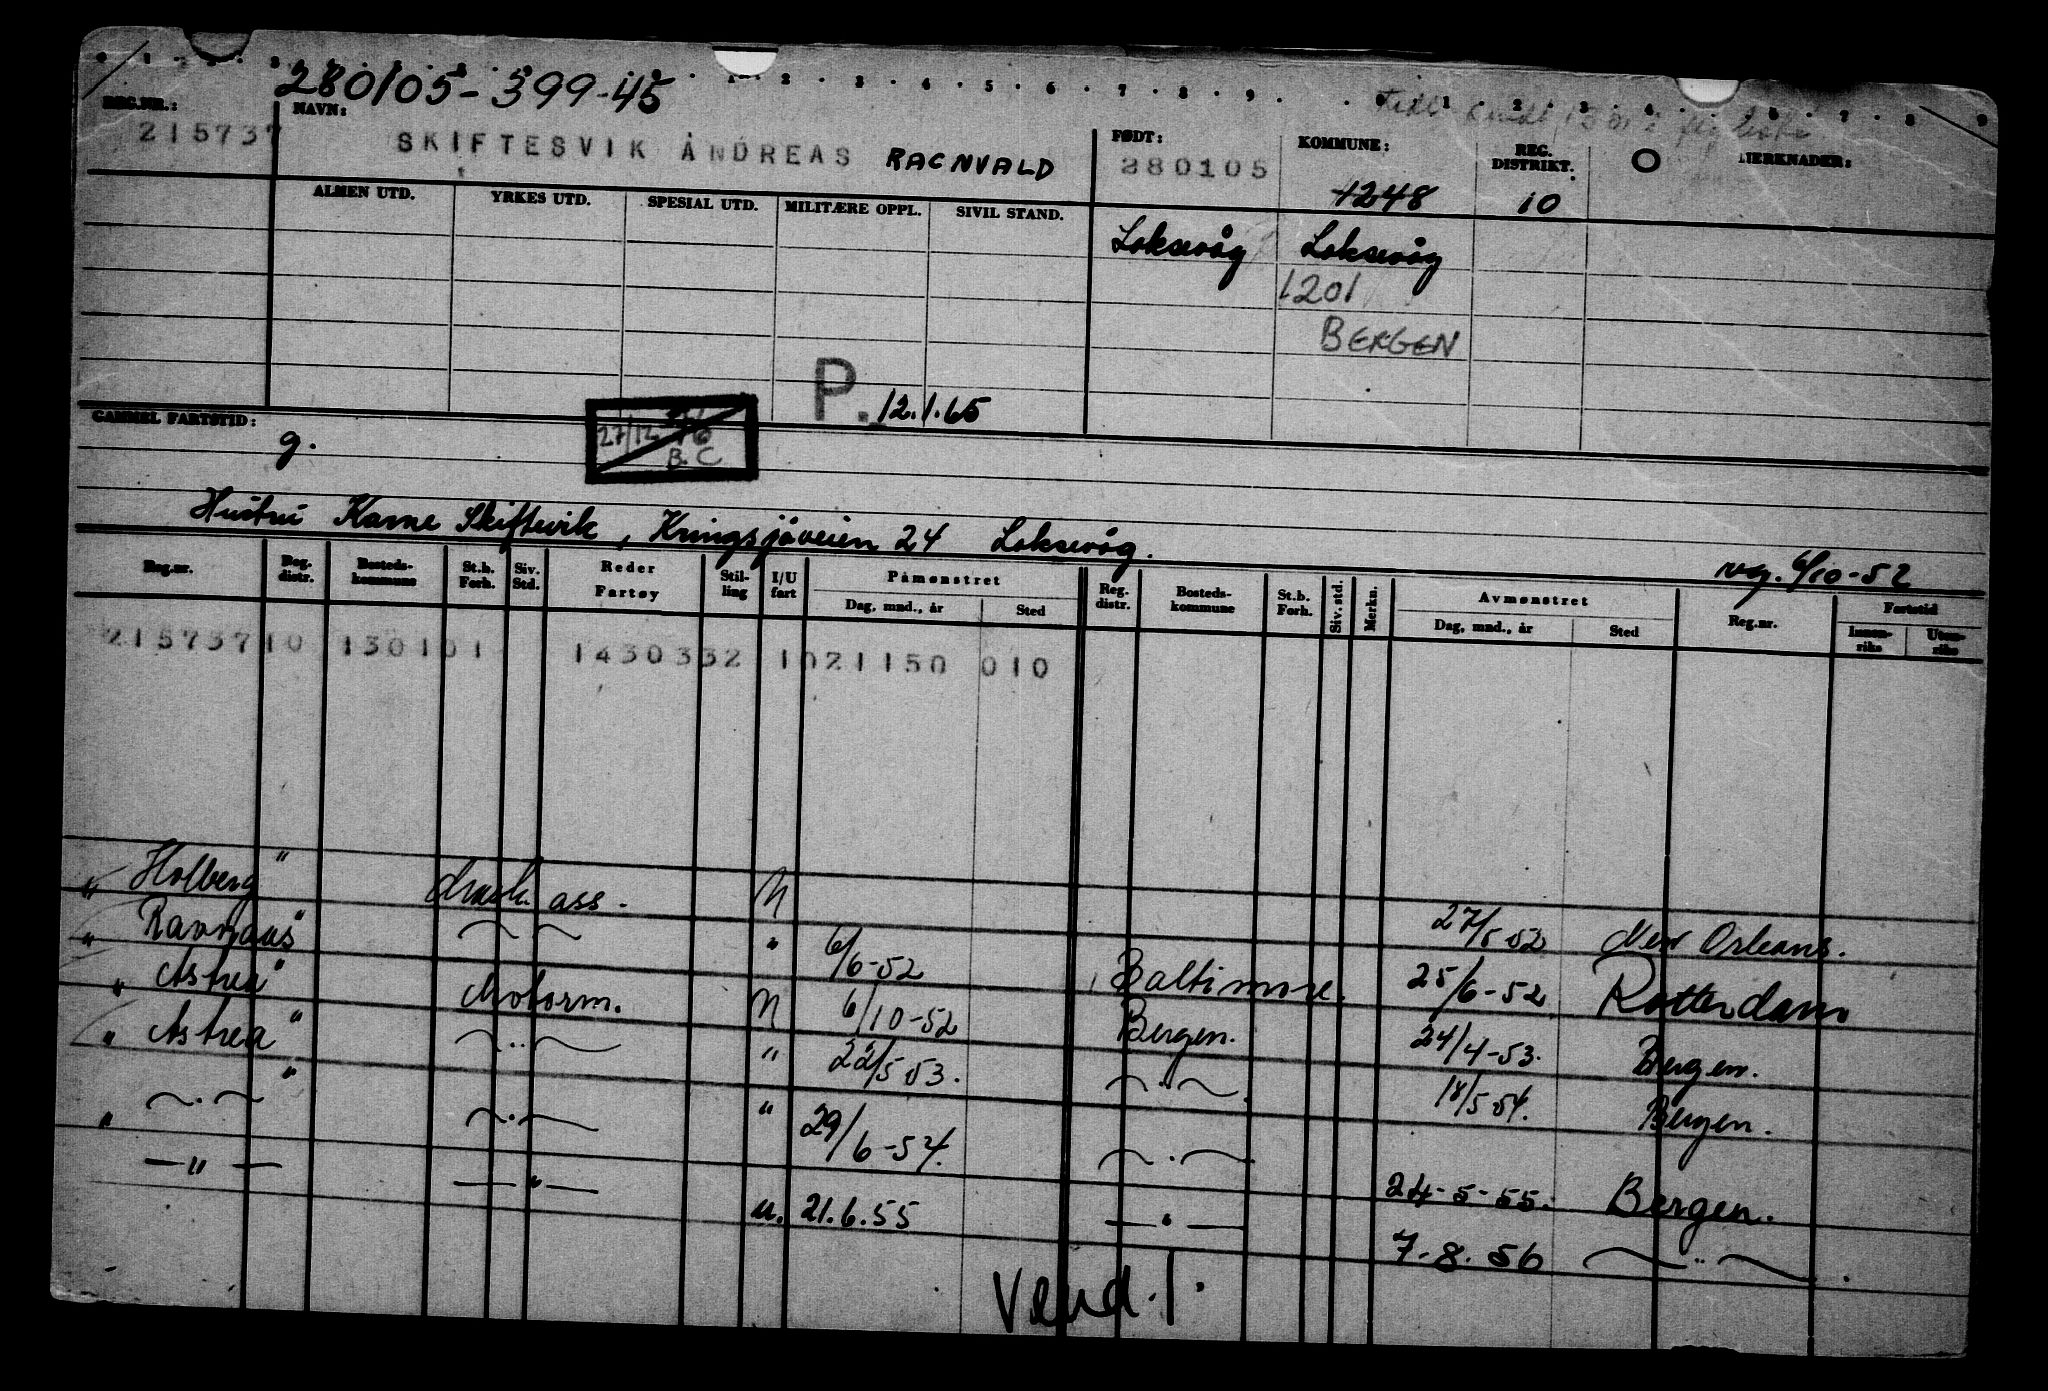 280105-399-45
REG.NR.: NAVN: FØDT: KOMMUNE: REG. DISTRIKT. MERKNADER:
215737 SKIFTESVIK ANDREAS RAGNVALD 280105 1248 10
ALMEN UTD. YRKES UTD. SPESIAL UTD. MILITÆRE OPPL. SIVIL STAND.
Laksevåg Laksevåg
1201
BERGEN
P. 12.1.65
GAMMEL FARTSTID:
g.
27/12
B.C
Hustru Karne Skiftevik, Kringsjåveien 24 Laksevåg.
vg. 6/10-52
Reg.nr. Reg. distr. Bosteds- kommune St.b. Forh. Siv. Std. Reder Fartøy Stil- ling I/U fart Påmønstret Dag, mnd., år Sted Reg. distr. Bosteds- kommune St.b. Forh. Siv. std. Merkn. Avmønstret Dag, mnd., år Sted Reg.nr. Fartstid Innen- riks Uten- riks
215737 10 130101 1430332 1021150 010
" Holberg " ass. 27/5 52 New Orleans.
" " — " — " 6/6-52 Baltimore. 25/6-52 Rotterdam
" Astrea " Motorm. 6/10-52 Bergen. 24/4-53. Bergen.
" Astrea " — " — " 22/5 53. — " — 18/5 54. Bergen.
" — " — " — " — " 29/6-54. — " — 24-5-55. Bergen.
— " — — " — u. 21.6.55 — " — 7-8.56 — " — .
Vend.!